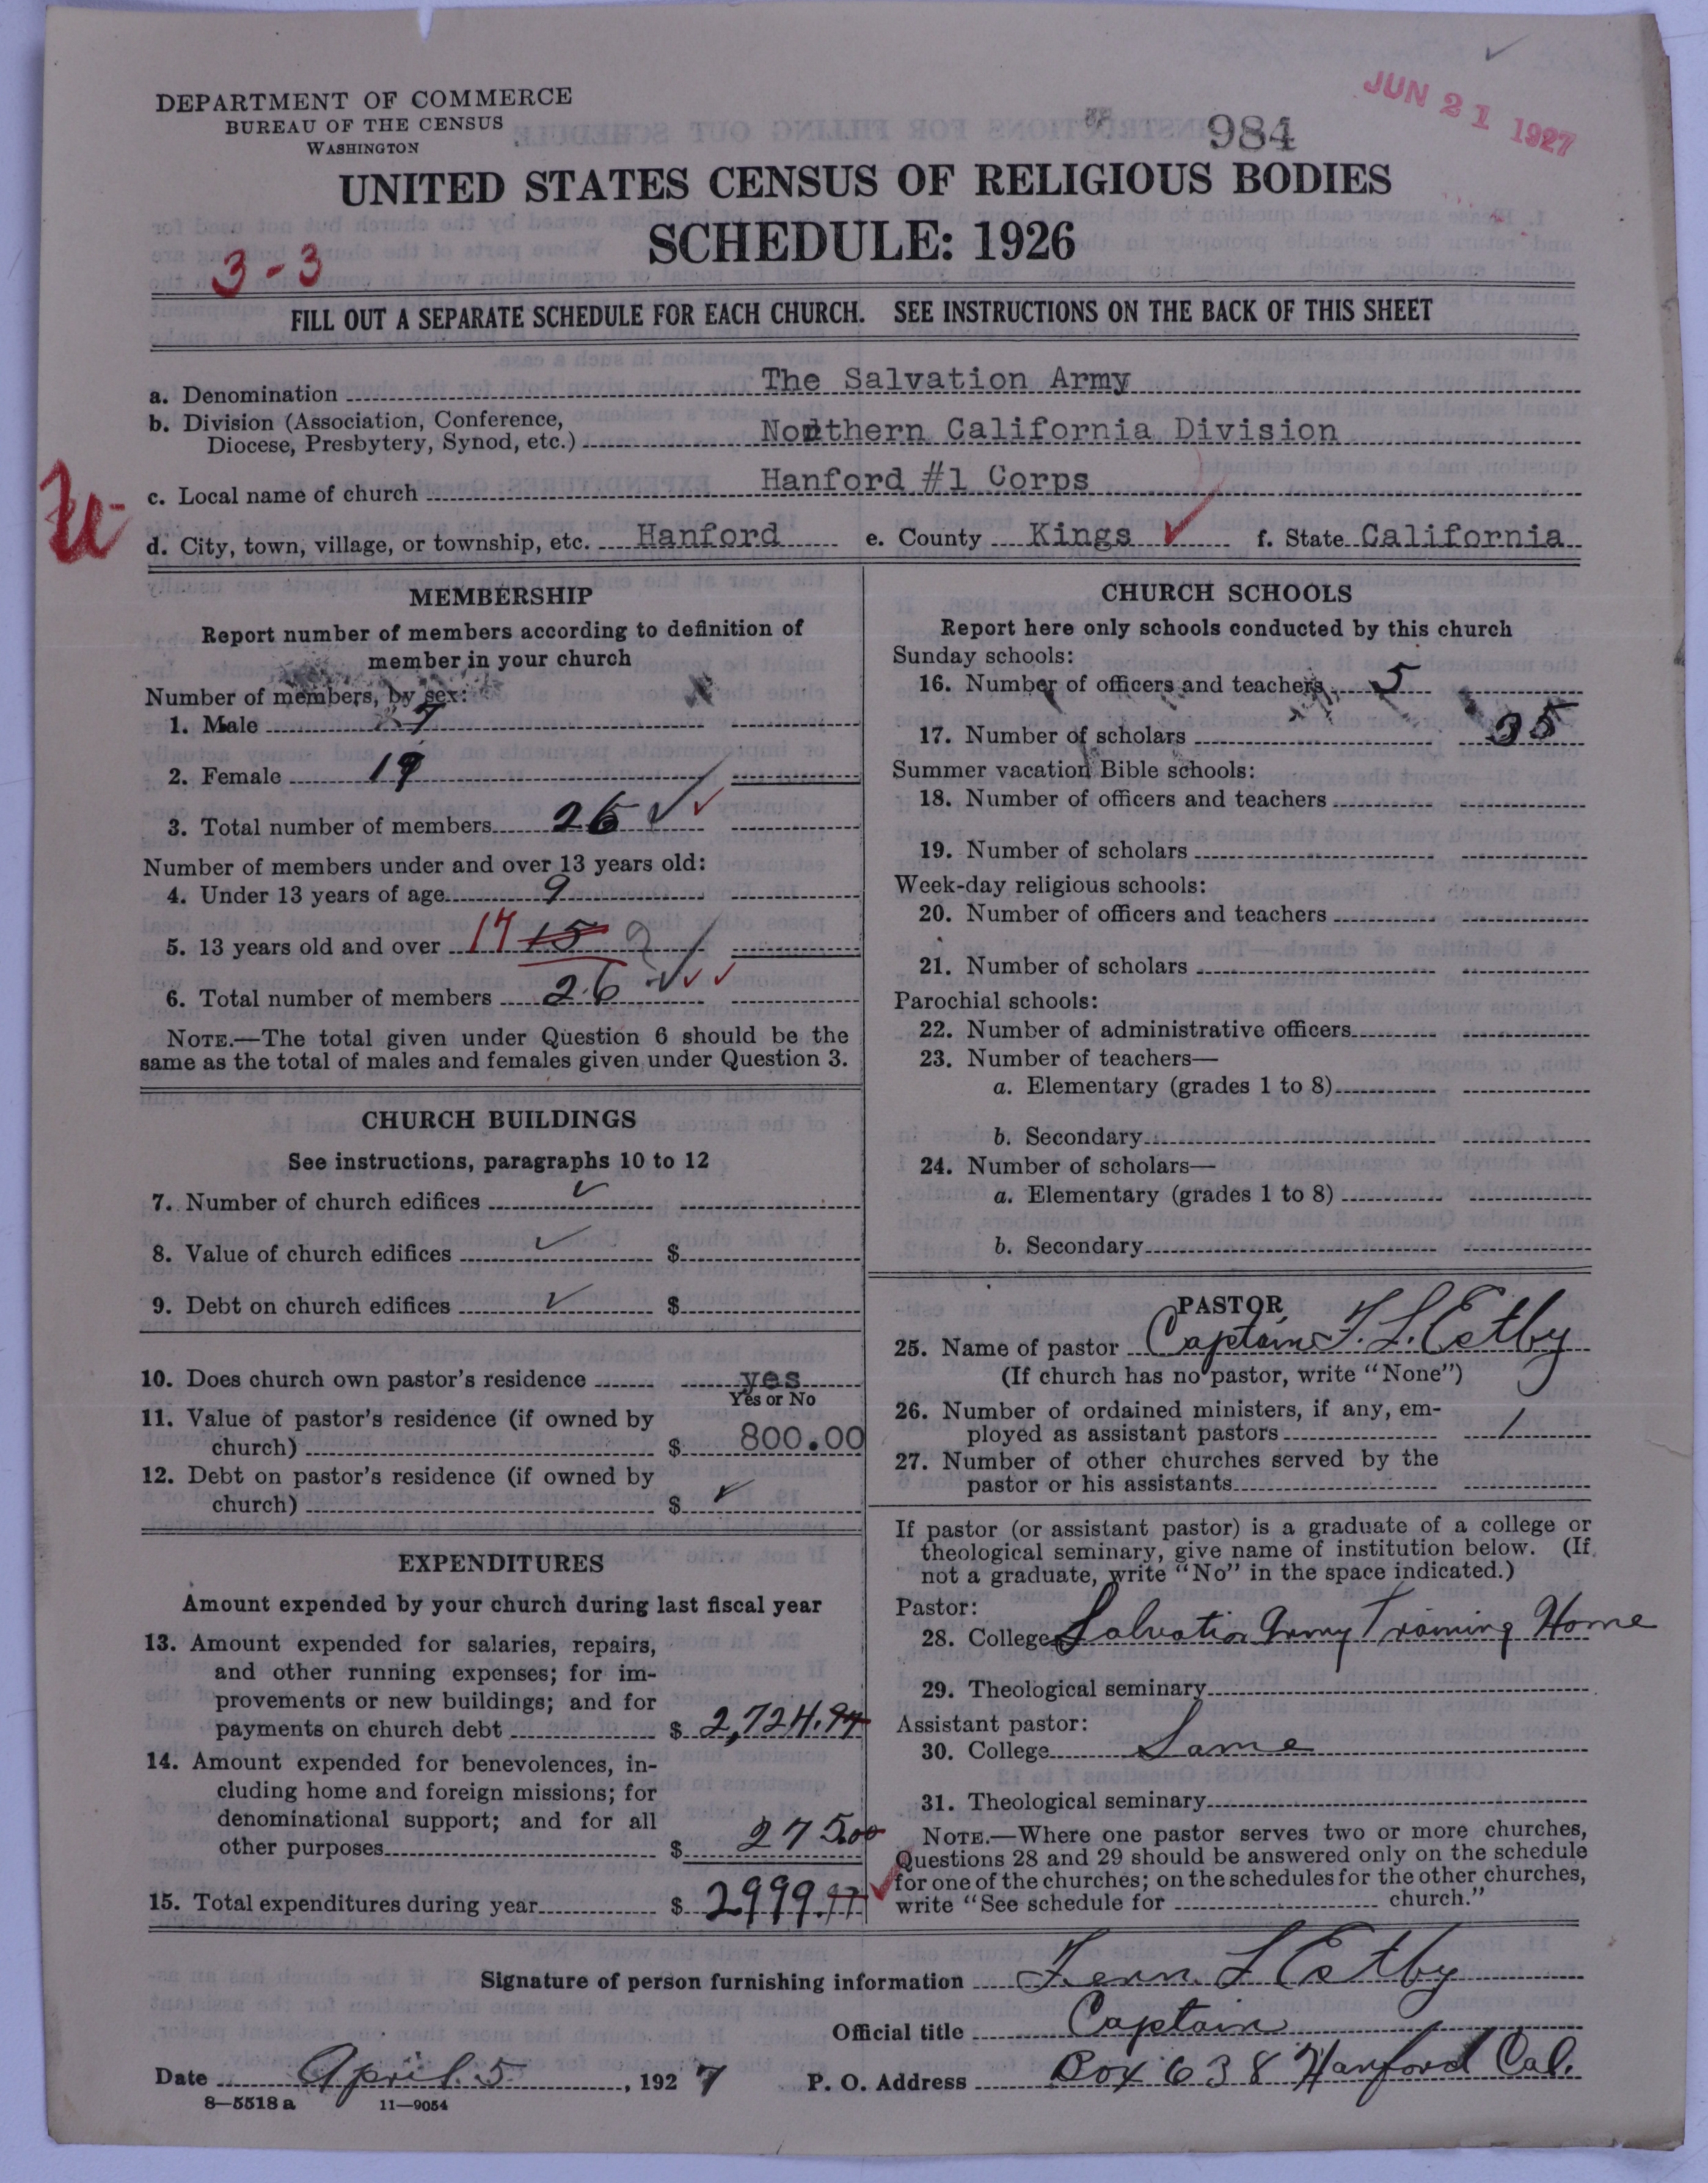 DEPARTMENT OF COMMERCE
BUREAU OF THE CENSUS
WASHINGTON
984
JUN 21 1927
UNITED STATES CENSUS OF RELIGIOUS BODIES
SCHEDULE: 1926
3-3
FILL OUT A SEPARATE SCHEDULE FOR EACH CHURCH. SEE INSTRUCTIONS ON THE BACK OF THIS SHEET
a. Denomination The Salvation Army
b. Division (Association, Conference,
Diocese, Presbytery, Synod, etc.) Northern California Division
c. Local name of church Hanford #1 Corps
d. City, town, village, or township, etc. Hanford e. County Kings ✓ f. State California
MEMBERSHIP
Report number of members according to definition of
member in your church
Number of members, by sex:
1. Male 7
2. Female 19
3. Total number of members 26 ✓ ✓
Number of members under and over 13 years old:
4. Under 13 years of age 9
5. 13 years old and over 17 15
6. Total number of members 26 ✓ ✓ ✓
NOTE.—The total given under Question 6 should be the
same as the total of males and females given under Question 3.
CHURCH BUILDINGS
See instructions, paragraphs 10 to 12
7. Number of church edifices ✓
8. Value of church edifices ✓ $
9. Debt on church edifices ✓ $
10. Does church own pastor's residence yes
Yes or No
11. Value of pastor's residence (if owned by
church) $ 800.00
12. Debt on pastor's residence (if owned by
church) $ ✓
EXPENDITURES
Amount expended by your church during last fiscal year
13. Amount expended for salaries, repairs,
and other running expenses; for im-
provements or new buildings; and for
payments on church debt $ 2,724.97
14. Amount expended for benevolences, in-
cluding home and foreign missions; for
denominational support; and for all
other purposes $ 275.00
15. Total expenditures during year $ 2999.97 ✓
CHURCH SCHOOLS
Report here only schools conducted by this church
Sunday schools:
16. Number of officers and teachers 5
17. Number of scholars 35
Summer vacation Bible schools:
18. Number of officers and teachers
19. Number of scholars
Week-day religious schools:
20. Number of officers and teachers
21. Number of scholars
Parochial schools:
22. Number of administrative officers
23. Number of teachers—
a. Elementary (grades 1 to 8)
b. Secondary
24. Number of scholars—
a. Elementary (grades 1 to 8)
b. Secondary
PASTOR
25. Name of pastor Captain F. L. Estby
(If church has no pastor, write "None")
26. Number of ordained ministers, if any, em-
ployed as assistant pastors 1
27. Number of other churches served by the
pastor or his assistants
If pastor (or assistant pastor) is a graduate of a college or
theological seminary, give name of institution below. (If
not a graduate, write "No" in the space indicated.)
Pastor:
28. College Salvation Army Training Home
29. Theological seminary
Assistant pastor:
30. College Same
31. Theological seminary
NOTE.—Where one pastor serves two or more churches,
Questions 28 and 29 should be answered only on the schedule
for one of the churches; on the schedules for the other churches,
write "See schedule for church."
Signature of person furnishing information Fenn L Estby
Official title Captain
Date April 5, 1927 P. O. Address Box 638 Hanford Cal.
8—5518 a 11—9054